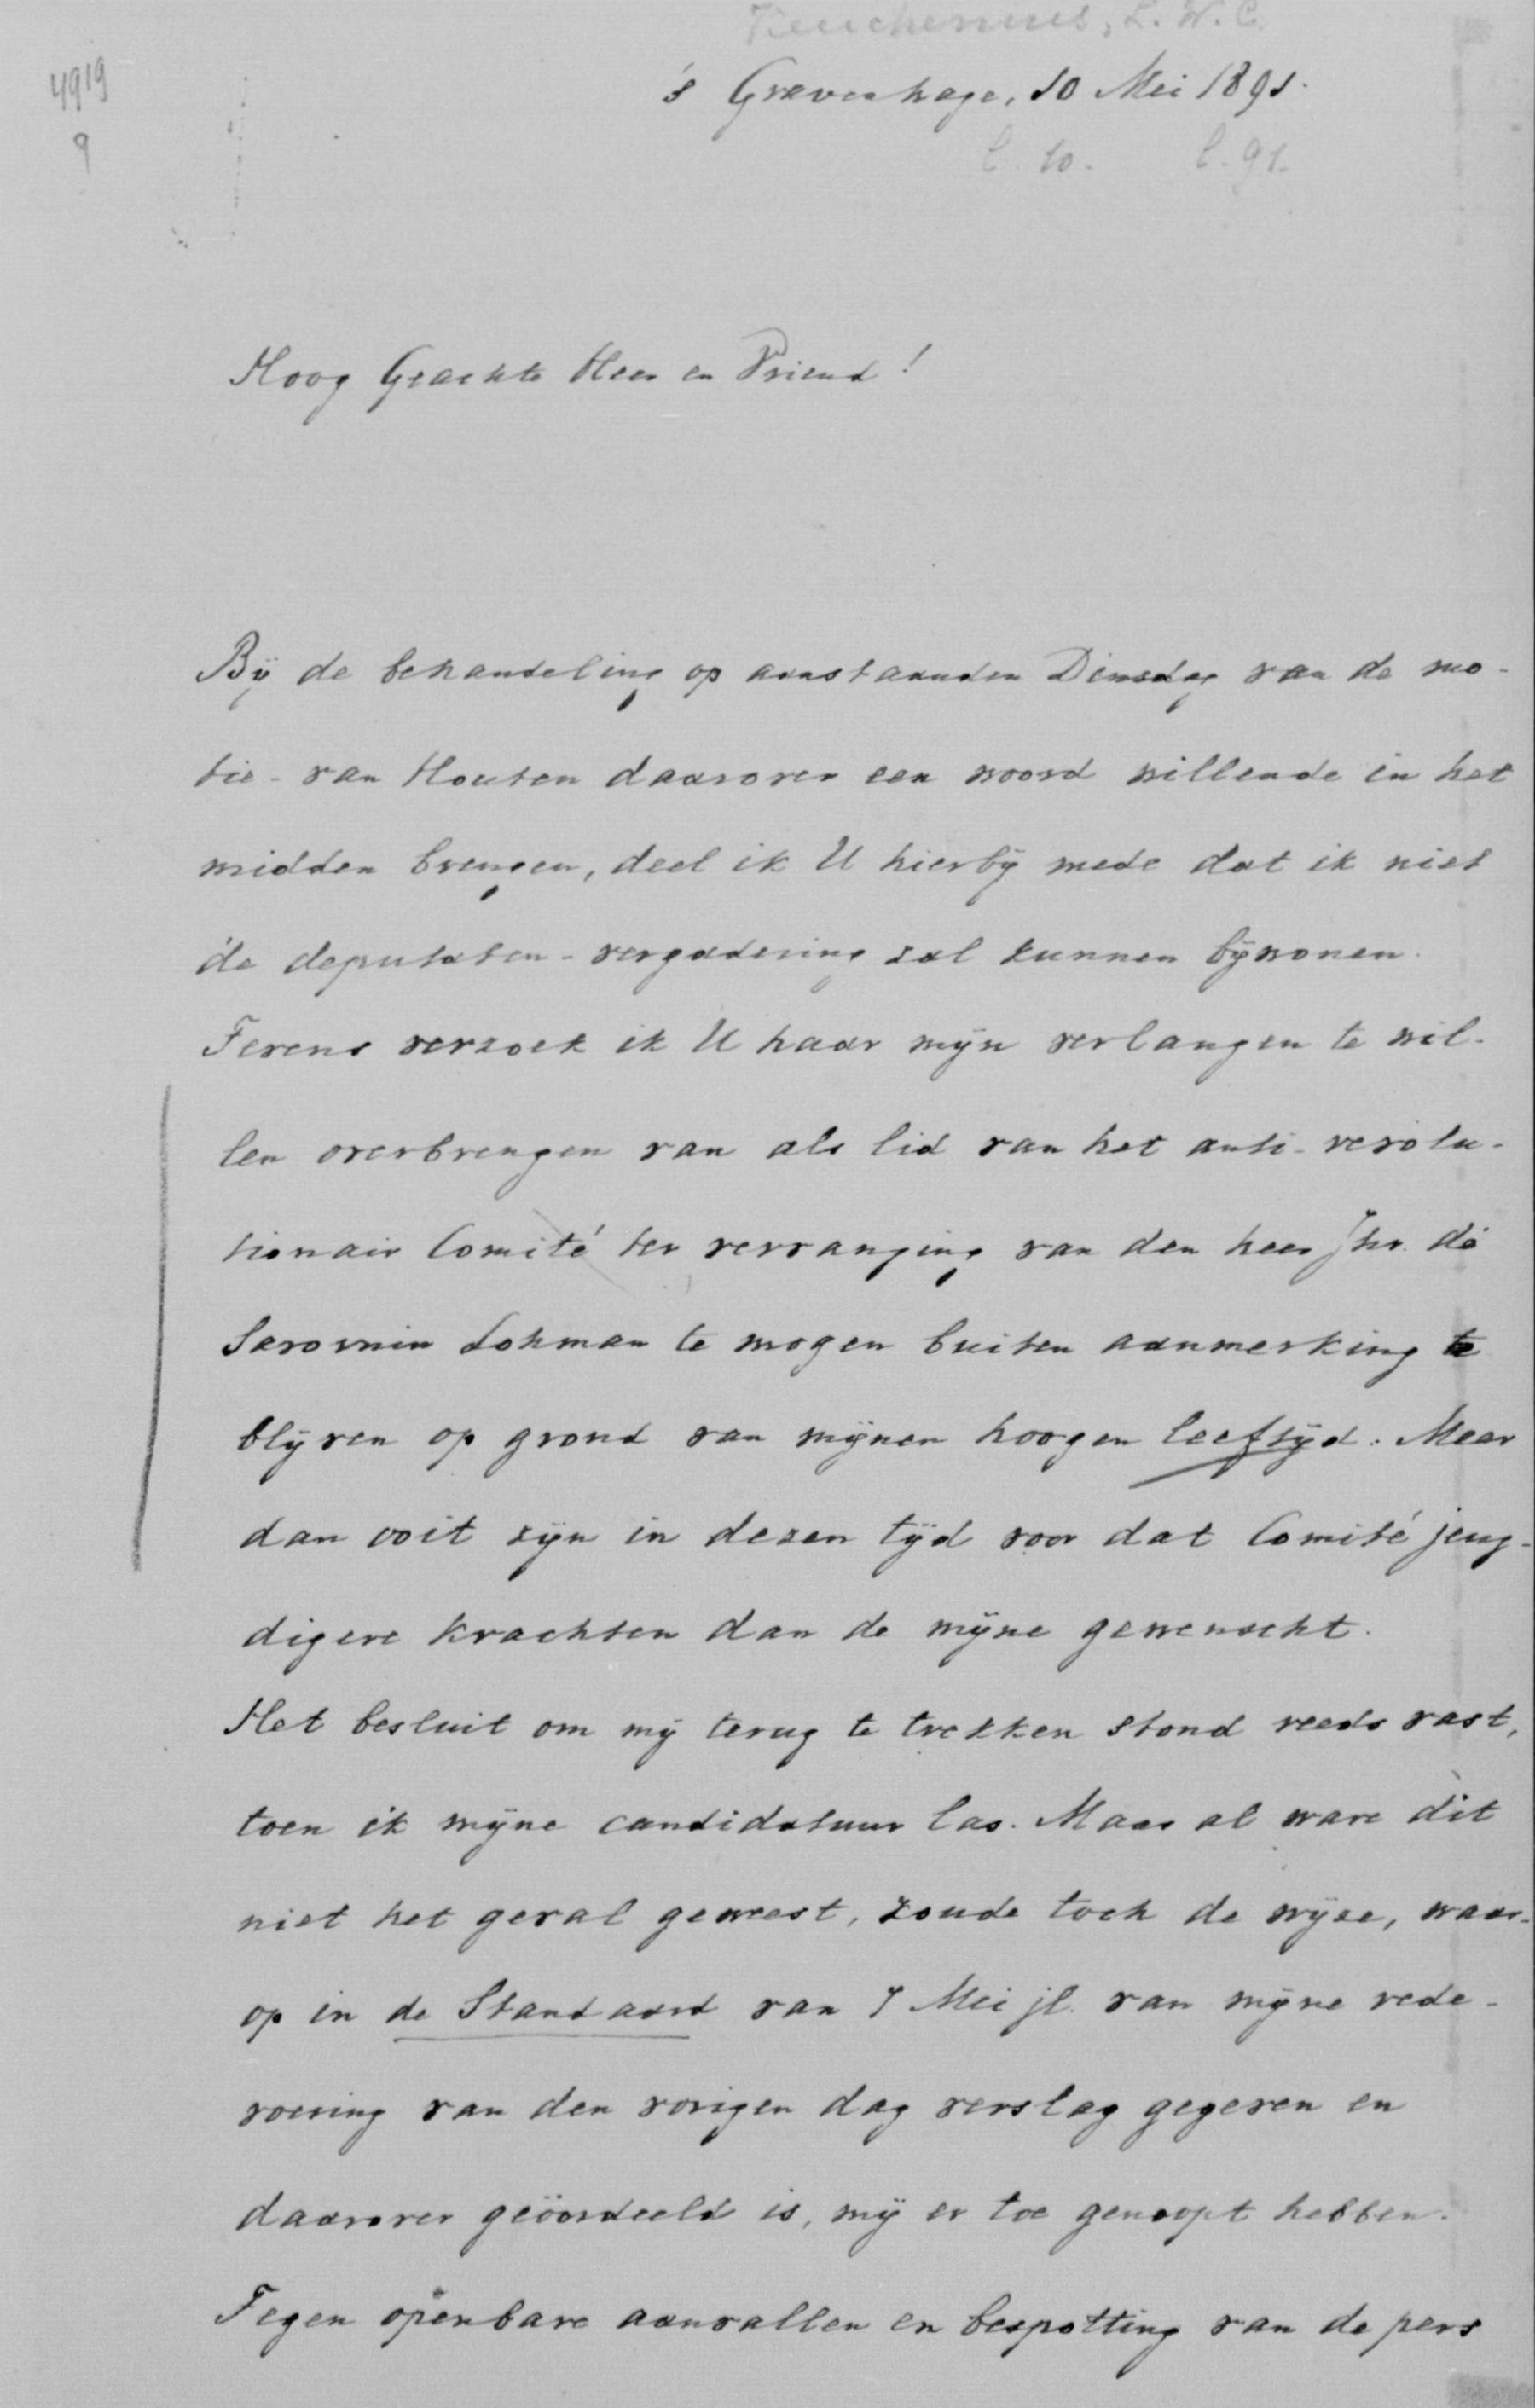 Keuchenius, L. W. C.
4919
9
's Gravenhage, 10 Mei 1891.
b. 10. b. 91.
Hoog Geachte Heer en Vriend!
Bij de behandeling op aanstaanden Dinsdag van de mo-
tie-van Houten daarover een woord willende in het
midden brengen, deel ik U hierbij mede dat ik niet
de deputaten-vergadering zal kunnen bijwonen.
Tevens verzoek ik U haar mijn verlangen te wil-
len overbrengen van als lid van het anti-revolu-
tionair Comité ter vervanging van den heer Jhr. de
Savornin Lohman te mogen buiten aanmerking te
blijven op grond van mijnen hoogen leeftijd. Meer
dan ooit zijn in dezen tijd voor dat Comité jeug-
digere krachten dan de mijne gewenscht.
Het besluit om mij terug te trekken stond reeds vast,
toen ik mijne candidatuur las. Maar al ware dit
niet het geval geweest, zoude toch de wijze, waar-
op in de Standaard van 7 Mei jl. van mijne rede-
voering van den vorigen dag verslag gegeven en
daarover geöordeeld is, mij er toe genoopt hebben.
Tegen openbare aanvallen en bespotting van de pers